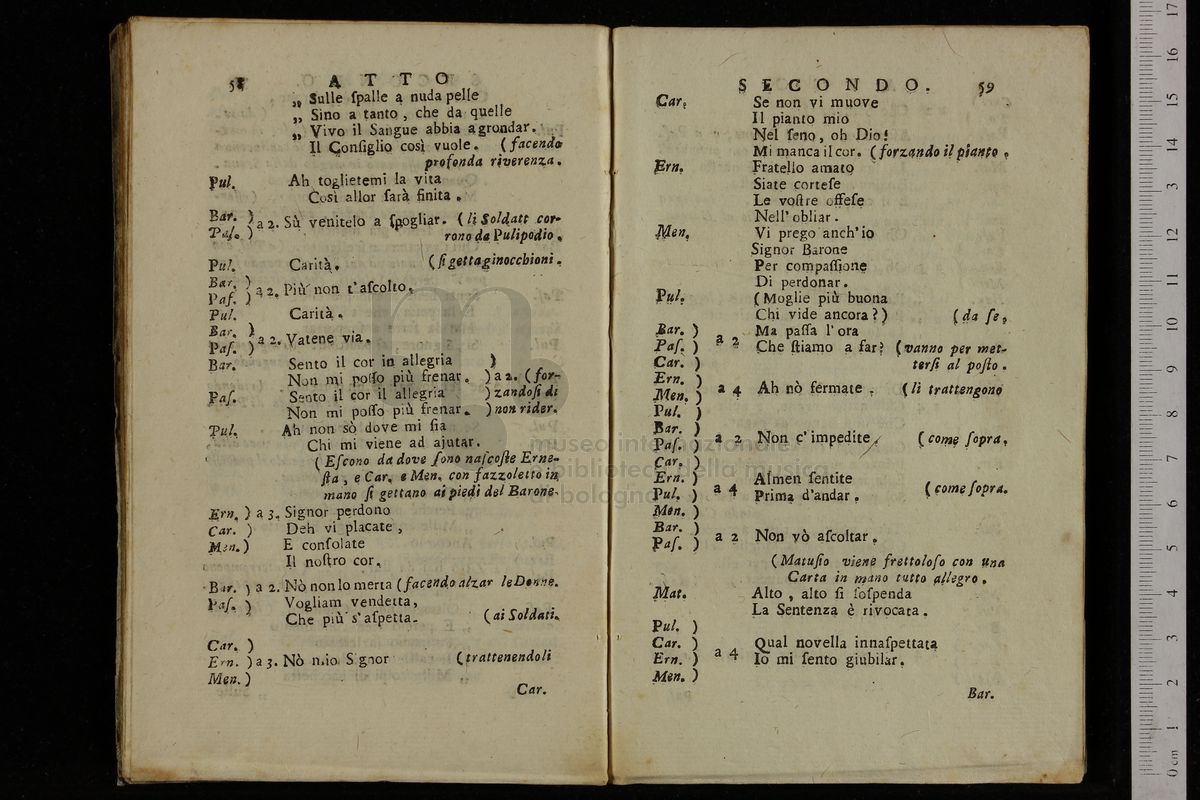 58 ATTO
„ Sulle ſpalle a nuda pelle
„ Sino a tanto, che da quelle
„ Vivo il Sangue abbia a grondar.
Il Conſiglio così vuole. (facendo
profonda riverenza.
Pul. Ah toglietemi la vita
Così allor ſarà finita.
Bar. )
Paſ. ) a 2. Sù venitelo a ſpogliar. (li Soldati cor-
rono da Pulipodio.
Pul. Carità. (ſi getta ginocchioni.
Bar. )
Paſ. ) a 2. Più non t'aſcolto.
Pul. Carità.
Bar. )
Paſ. ) a 2. Vatene via.
Bar. Sento il cor in allegria )
Non mi poſſo più frenar. ) a 2. (for-
Paſ. Sento il cor il allegria ) zandoſi di
Non mi poſſo più frenar. ) non rider.
Pul. Ah non sò dove mi ſia
Chi mi viene ad ajutar.
(Eſcono da dove ſono naſcoſte Erne-
ſta, e Car. e Men. con fazzoletto in
mano ſi gettano ai piedi del Barone.
Ern. ) a 3. Signor perdono
Car. ) Deh vi placate,
Men. ) E conſolate
Il noſtro cor.
Bar. ) a 2. Nò non lo merta (facendo alzar le Donne.
Paſ. ) Vogliam vendetta,
Che più s'aſpetta. (ai Soldati.
Car. )
Ern. ) a 3. Nò mio Signor (trattenendoli
Men. )
Car.
SECONDO. 59
Car. Se non vi muove
Il pianto mio
Nel ſeno, oh Dio!
Mi manca il cor. (forzando il pianto.
Ern. Fratello amato
Siate corteſe
Le voſtre offeſe
Nell'obliar.
Men. Vi prego anch'io
Signor Barone
Per compaſſione
Di perdonar.
Pul. (Moglie più buona
Chi vide ancora?) (da ſe.
Bar. ) Ma paſſa l'ora
Paſ. ) a 2 Che ſtiamo a far? (vanno per met-
Car. ) terſi al poſto.
Ern. )
Men. ) a 4 Ah nò fermate. (li trattengono
Pul. )
Bar. )
Paſ. ) a 2 Non c'impedite. (come ſopra.
Car. )
Ern. ) Almen ſentite
Pul. ) a 4 Prima d'andar. (come ſopra.
Men. )
Bar. )
Paſ. ) a 2 Non vò aſcoltar.
(Matuſio viene frettoloſo con una
Carta in mano tutto allegro.
Mat. Alto, alto ſi ſoſpenda
La Sentenza è rivocata.
Pul. )
Car. ) Qual novella innaſpettata
Ern. ) a 4 Io mi ſento giubilar.
Men. )
Bar.
museo internazionale
e biblioteca della musica
di bologna
0 cm 1 2 3 4 5 6 7 8 9 10 11 12 13 14 15 16 17